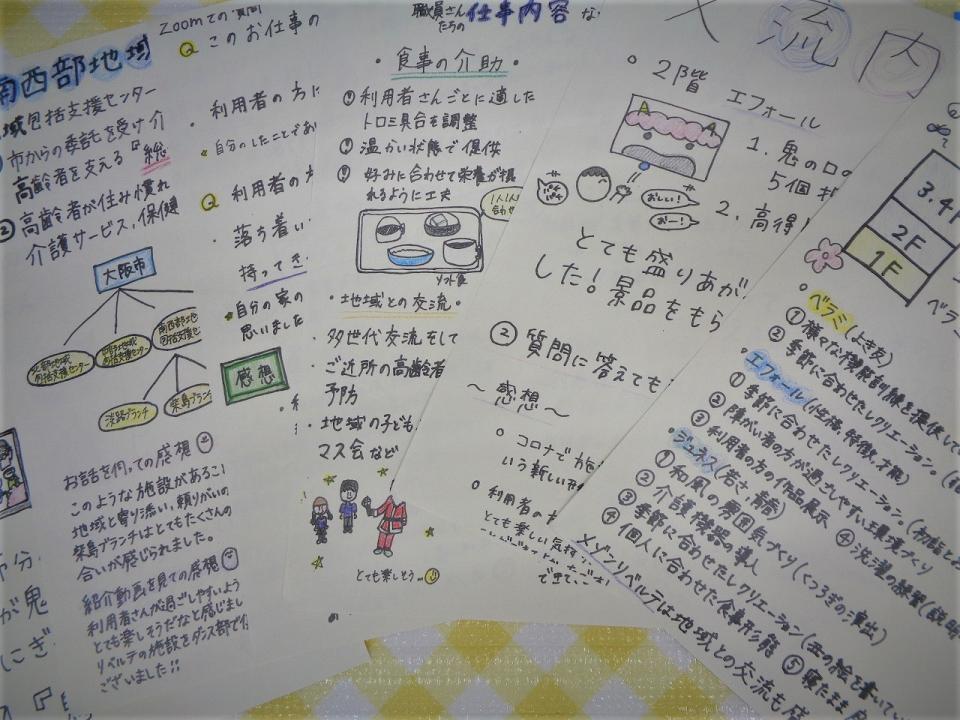 南西部地域
域包括支援センター
市からの委託を受け介
高齢者を支える『総
② 高齢者が住み慣れ
介護サービス、保健
大阪市
北部地域
包括支援センター
南西部地域
包括支援セ
淡路ブランチ
柴島ブランチ
お話を伺っての感想
このような施設があるこ
地域と寄り添い、頼りがいの
柴島ブランチはとてもたくさんの
合いが感じられました。
紹介動画を見ての感想
利用者さんが過ごしやすいよう
とても楽しそうだなと感じまし
リベルテの施設をダンス部で
ございました!!
が鬼
にぎ
Zoomでの質問
Q このお仕事の
・利用者の方に
★自分のしたことでお
Q 利用者の方
・落ち着い
持ってき
★自分の家の
思いました
感想
職員さんたちの仕事内容
・食事の介助・
利用者さんごとに適した
トロミ具合も調整
温かい状態で提供
好みに合わせて栄養が摂
れるように工夫
1人1人
合わせ
ソフト食
・地域との交流・
・多世代交流をして
ご近所の高齢者
予防
・地域の子ども
マス会など
とても楽しそう
流内
2階 エフォール
1. 鬼の口
5個
2. 高得
パチ
パチ
おしい!
おー!
とても盛りあが
した!景品をもら
② 質問に答えても
～感想～
コロナで施
いう新しい
利用者の方
とても楽しい気持
できてい
3.4F
2F
1F
ベラミ(よき友)
① 様々な機能訓練を提供して
② 季節に合わせたレクリエーション。
エフォール(性格、特徴、才能)
① 季節に合わせたレクリエーション。
② 障がい者の方が過ごしやすい環境づくり
③ 利用者の方の作品展示 ④ 洗濯の練習(説明
ジュネス(若さ、青春)
① 和風の雰囲気づくり(くつろぎの演出)
② 介護機器の導入
③ 季節に合わせたレクリエーション(丑の絵を書いてい
④ 個人に合わせた食事形態 ⑤ 寝たまま
メゾンリベルテは地域との交流も